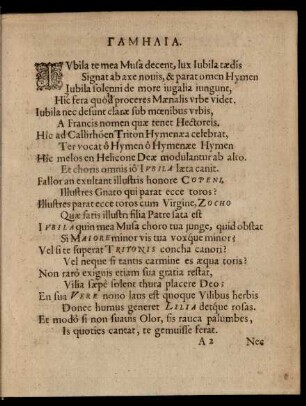 ΓΑΜΗΛΙΑ.
IVbila te mea Musa decent, lux Iubila tædis
Signat ab axe nouis, & parat omen Hymen
Iubila solenni de more iugalia iungunt,
Hic fera quod proceres Mænalis vrbe videt.
Iubila nec desunt claræ sub mœnibus vrbis,
A Francis nomen quæ tenet Hectoreis.
Hic ad Callirhöen Triton Hymenæa celebrat,
Ter vocat ô Hymen ô Hymenæe Hymen
Hic melos en Helicone Deæ modulantur ab alto.
Et choris omnis iô IVBILA læta canit.
Fallor an exultant illustris honore COTENI,
Illustres Gnato qui parat ecce toros?
Illustres parat ecce toros cum Virgine, ZOCHO
Quæ satis illustri filia Patre sata est
IVBILA quin mea Musa choro tua junge, quid obstat
Si MAIORE minor vis tua voxque minor?
Vel si te superat TRITONIS concha canori?
Vel neque si tantis carmine es æqua toris?
Non rarò exiguis etiam sua gratia restat,
Vilia sæpè solent thura placere Deo:
En sua VERE nouo laus est quoque Vilibus herbis
Donec humus generet LILIA detque rosas.
Et modò si non suauis Olor, sis rauca palumbes,
Is quoties cantat, te gemuisse ferat.
A 2
Nec